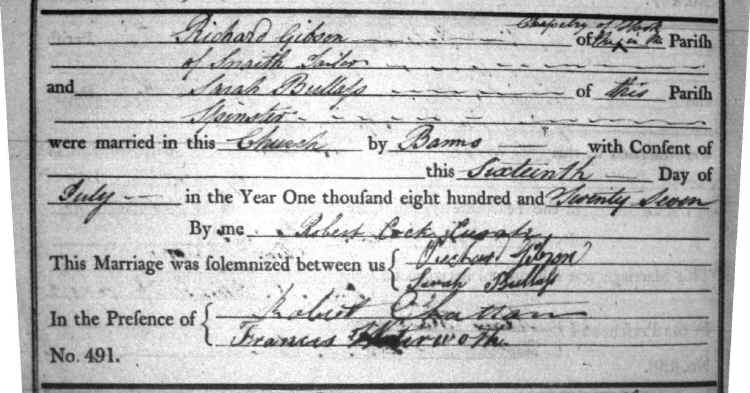 Chapelry of
Richard Gibson of in the Parish
of Snaith Tailor
and Sarah Bullass of this Parish
Spinster
were married in this Church by Banns with Consent of
this Sixteenth Day of
July in the Year One thousand eight hundred and Twenty Seven
By me Robert Cock Curate
This Marriage was solemnized between us { Richard Gibson
Sarah Bullass
In the Presence of { Robert Chattan
Francis
No. 491.